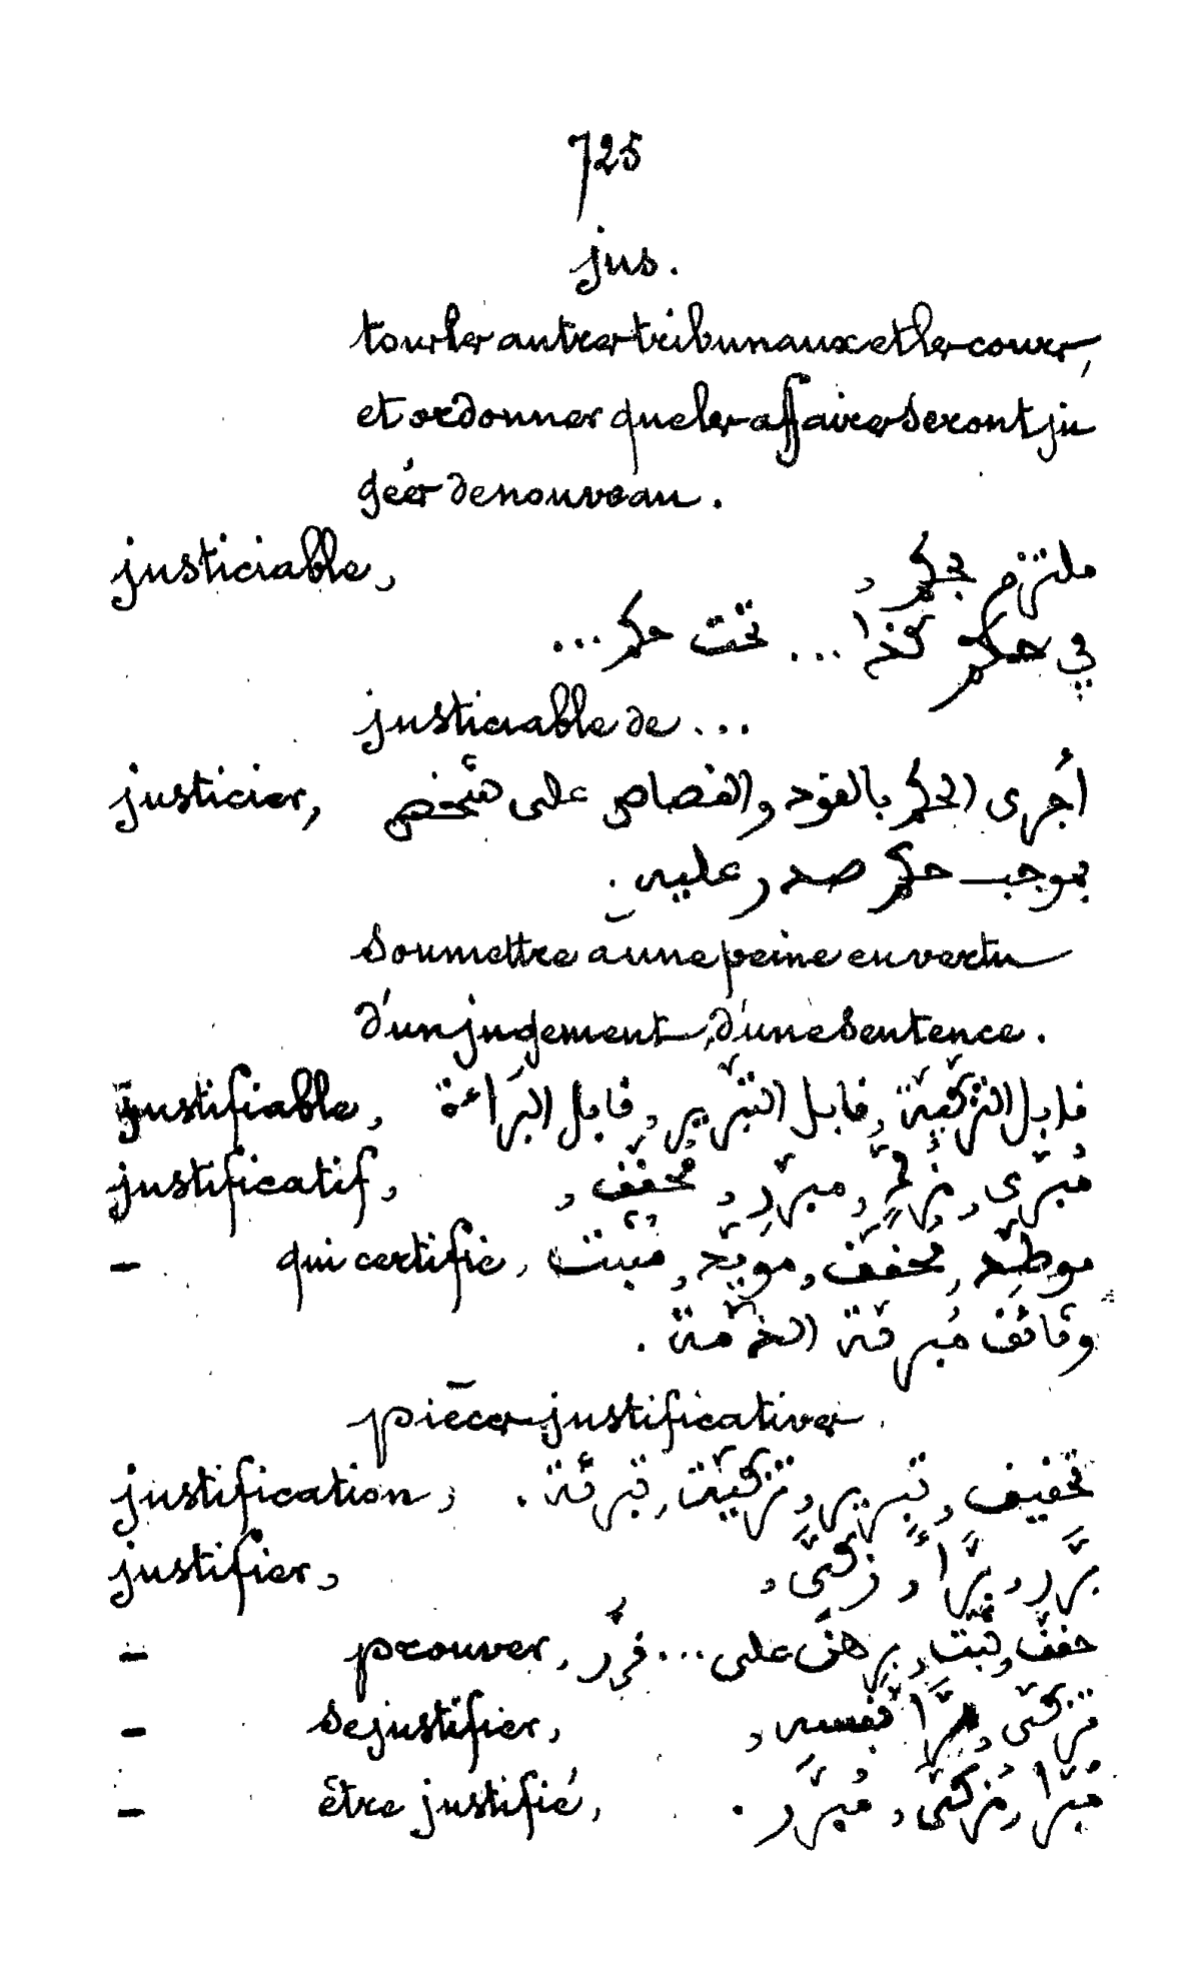 725
jus.
tous les autres tribunaux et les cours,
et ordonner que les affaires seront ju
gées de nouveau.
justiciable, ملتزم بحكم,
في حكم كذا ... تحت حكم ...
justiciable de ...
justicier, أجرى الحكم بالقود والقصاص على شخص
بموجب حكم صدر عليه.
soumettre à une peine en vertu
d'un jugement, d'une sentence.
justifiable, قابل التزكية, قابل التبرير, قابل البراءة
justificatif, مُبرّى, مُزكٍّ, مبرّر, مُخفّف,
- qui certifie, موطّد, مخفّف, مويّد, مثبّت
وثائق مُبرئة الذمّة.
pièces justificatives.
justification, تخفيف, تبرير, تزكية, تبرئة.
justifier, برّر, برّأ, زكّى,
- prouver, حقّق, ثبّت, برهن على ... قرّر
- se justifier, تزكّى, برّأ نفسه,
- être justifié, مُبرّأ, مُزكّى, مُبرّر.